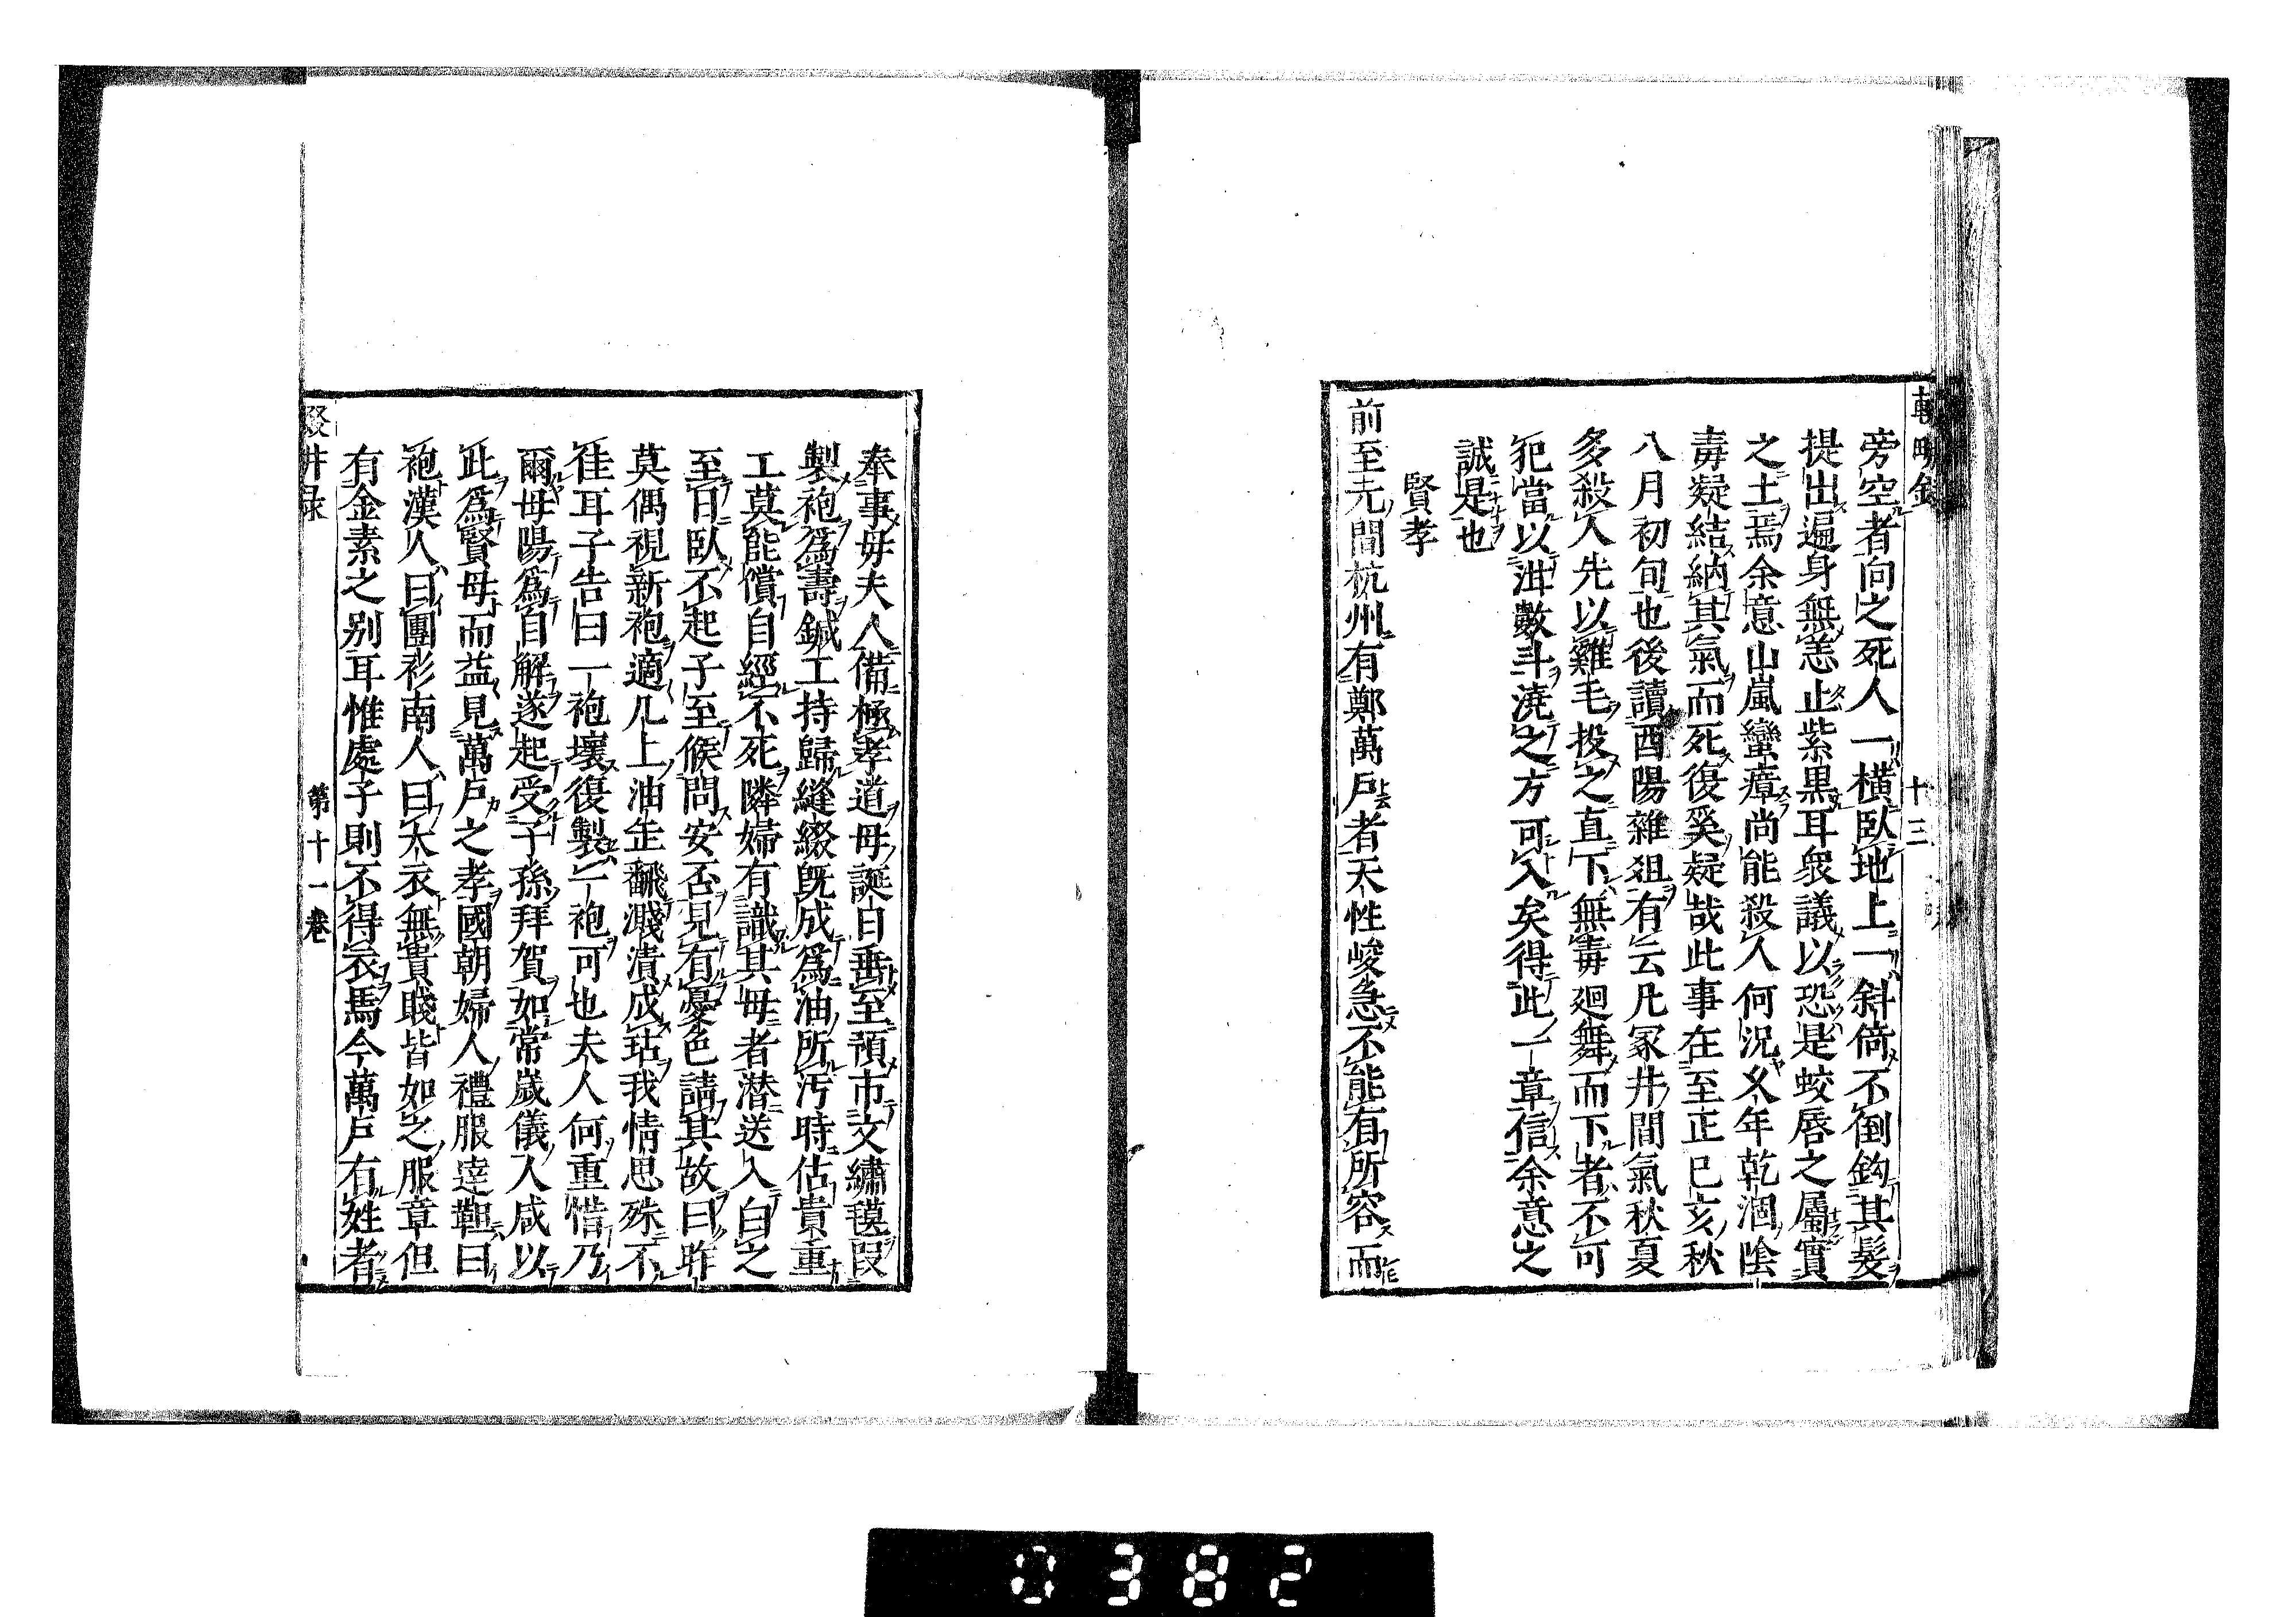 十三
旁空者向之死人一橫臥地上一斜倚不倒鈎其髮
提出遍身無恙止紫黒耳衆議以恐是蛟唇之屬實
之土焉余意山嵐蠻瘴尚能殺人何況久年乾涸陰
毒凝結納其氣而死復奚疑哉此事在至正己亥秋
八月初旬也後讀酉陽雜俎有云凡冢井間氣秋夏
多殺人先以雞毛投之直下無毒廻舞而下者不可
犯當以泔數斗澆之方可入矣得此一章信余意之
誠是也
賢孝
前至元間杭州有鄭萬戶者天性峻急不能有所容而
奉事母夫人備極孝道母誕日垂至預市文繡毯段
製袍為壽鍼工持歸縫綴旣成為油所汚時估貴重
工莫能償自經不死隣婦有識其母者潛送入白之
至日臥不起子至候問安否見有憂色請其故曰昨
莫偶視新袍適几上油缶翻濺漬成玷我情思殊不
佳耳子告曰一袍壞復製一袍可也夫人何重惜乃
爾母陽為自解遂起受子孫拜賀如常歲儀人咸以
此為賢母而益見萬戶之孝國朝婦人禮服達靼曰
袍漢人曰團衫南人曰大衣無貴賤皆如之服章但
有金素之別耳惟處子則不得衣焉今萬戶有姓者
第十一卷